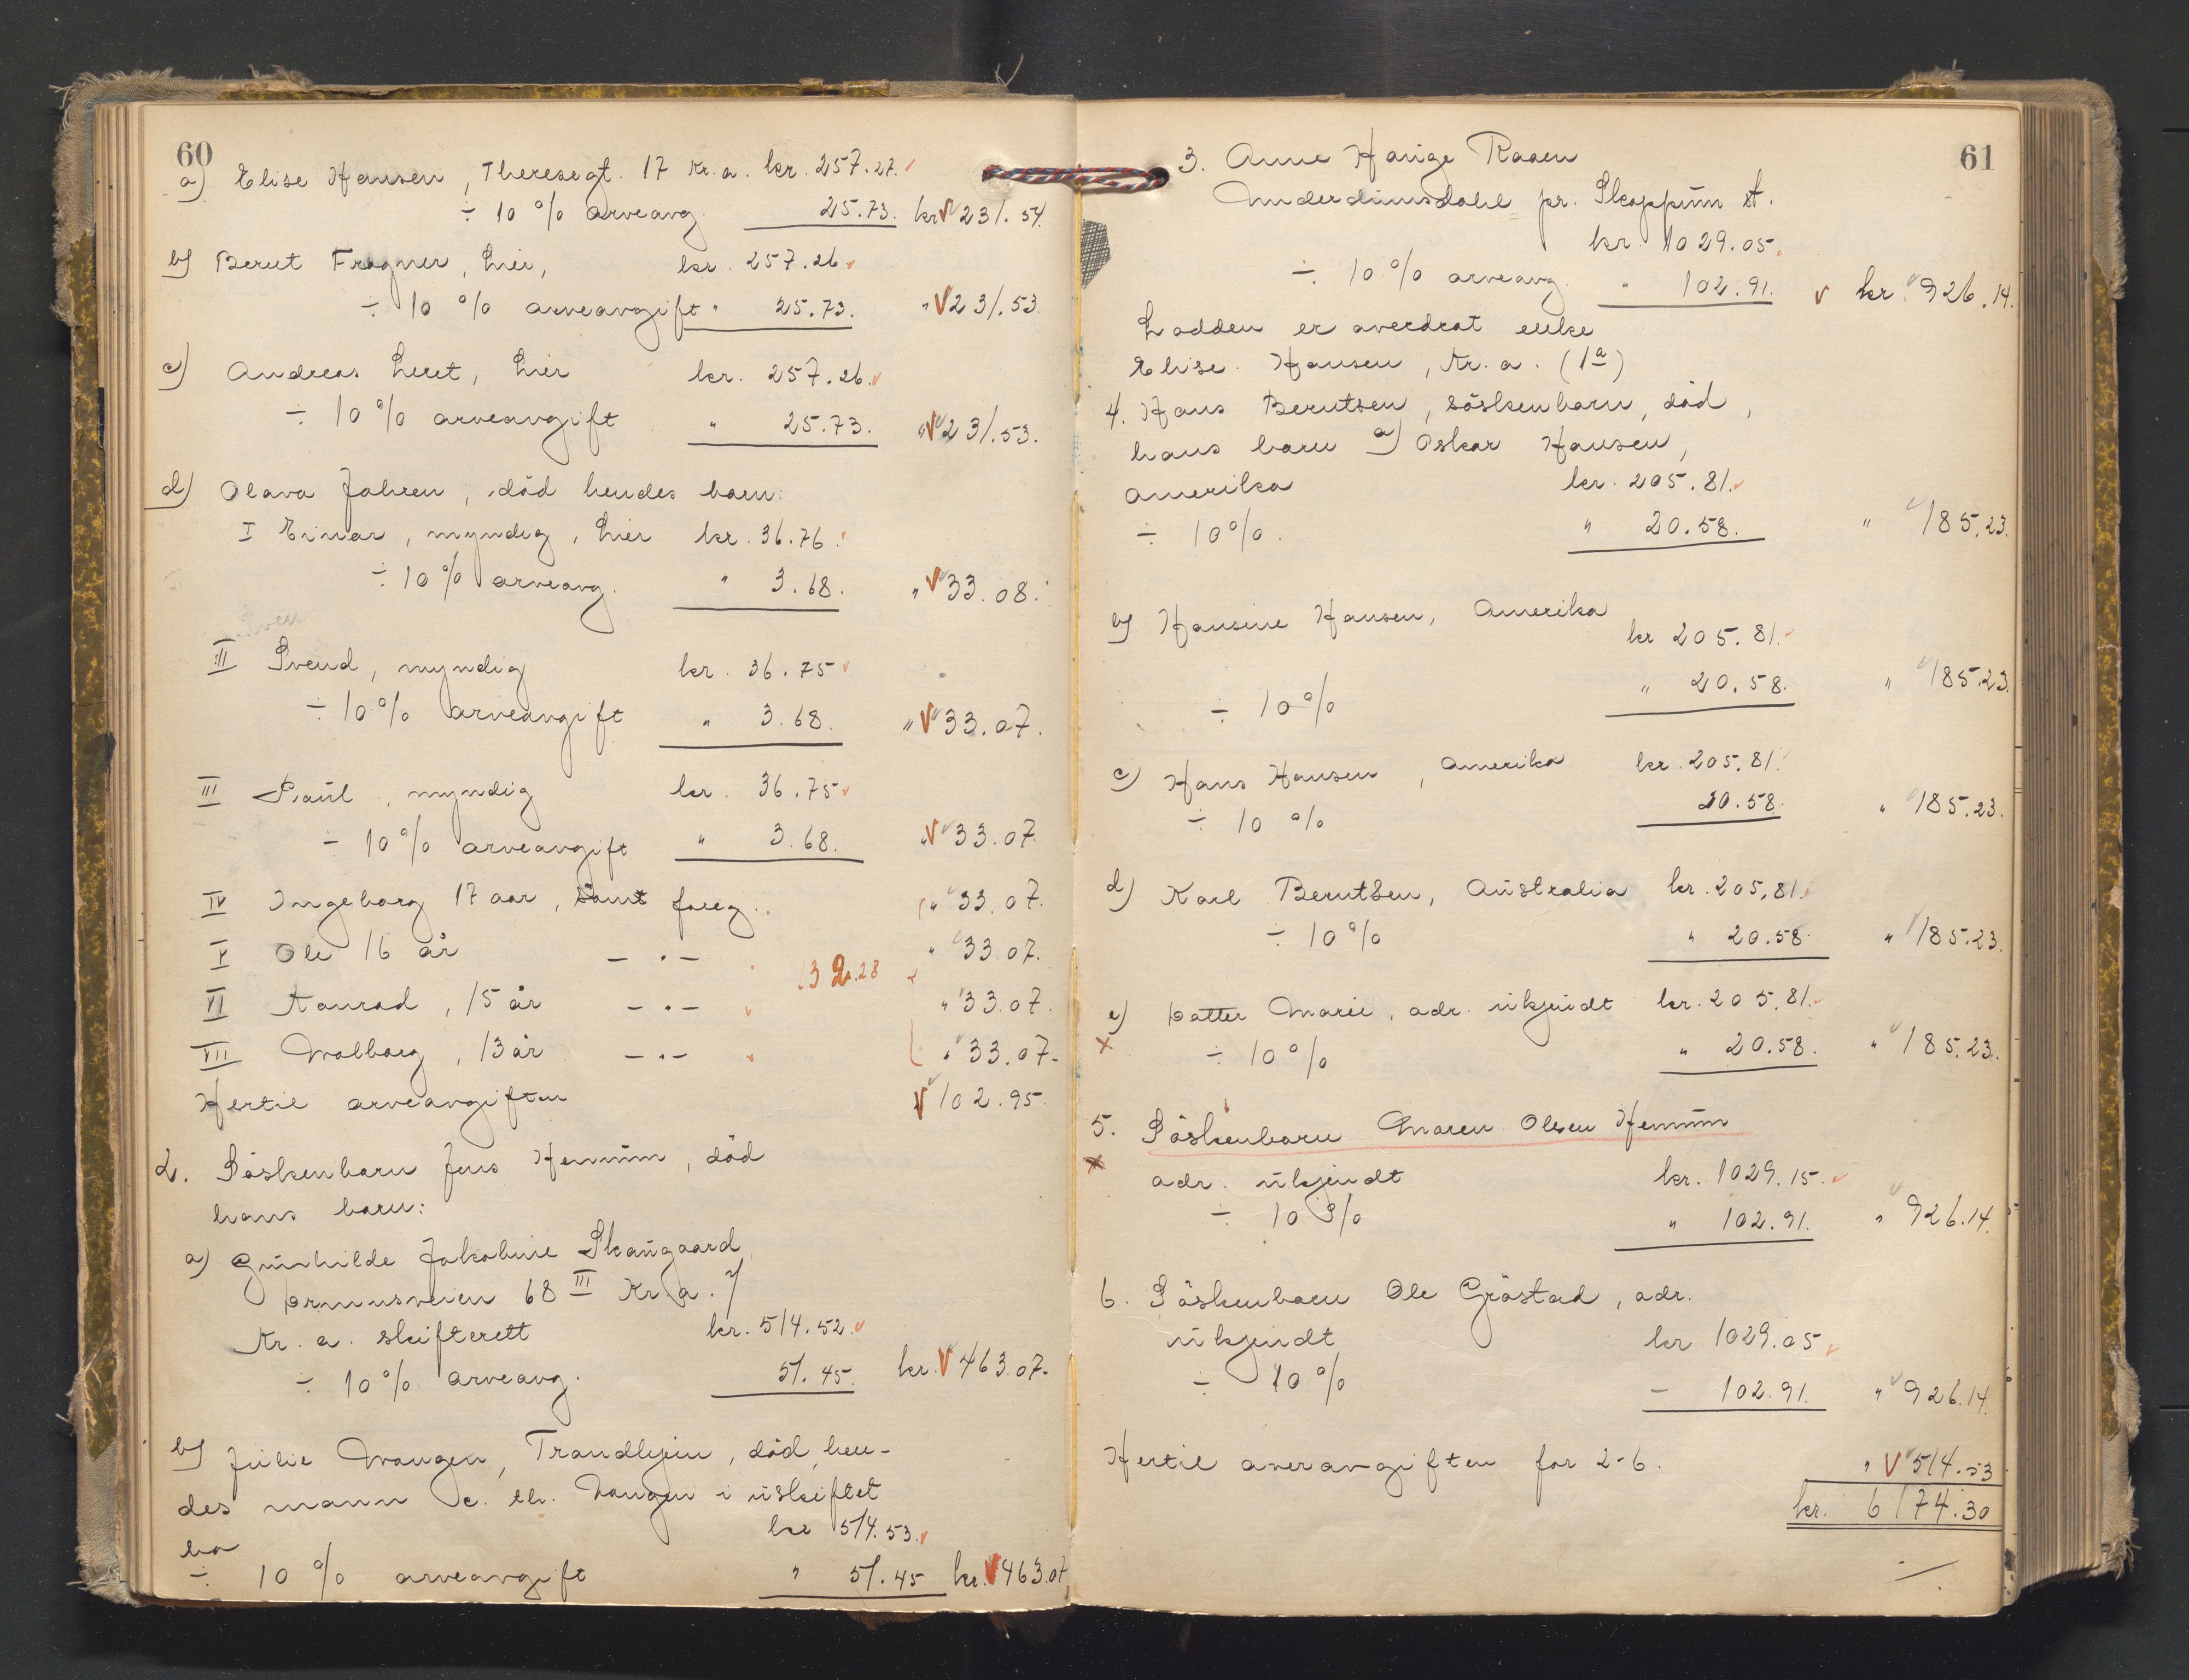 60
a) Elise Hansen, Theresegt. 17 Kr.a. kr. 257.27.
÷ 10 % arveavg. 25.73. kr 231.54.
b) Bernt Fragner, her, kr. 257.26
÷ 10 % arveavgift " 25.73. " 231.53.
c) Andreas Leret, her kr. 257.26.
÷ 10 % arveavgift " 25.73. " 231.53.
d) Olava Jahren, död hendes barn:
I Einar, myndig, her kr. 36.76.
÷ 10 % arveavg. " 3.68. " 33.08.
II Svend, myndig kr. 36.75
÷ 10 % arveavgift " 3.68. " 33.07.
III Paul, myndig kr. 36.75
÷ 10 % arveavgift " 3.68. " 33.07.
IV Ingeborg 17 aar, samt foreg. " 33.07.
V Ole 16 år — " — " 33.07.
132.28
VI Konrad, 15 år — " — " 33.07.
VII Valborg, 13 år — " — " 33.07.
Hertil arveavgiften 102.95.
2. Söskenbarn Jens Hemum, död
hans barn:
a) Gunhilde Jakobine Skaugaard
68 III Kr.a. 7/
Kr.a. skifterett kr. 514.52.
÷ 10 % arveavg. 51.45. kr. 463.07.
b) Julie Wangen, Trondhjem, död, hen-
des mann C. Th. Vangen i uskiftet
bo kr 514.53.
÷ 10 % arveavgift " 51.45 kr. 463.07.
61
3. Anne Hanige Raaen
Underdunsdahl pr. Skoppum st.
kr. 1029.05.
÷ 10 % arveavg. " 102.91. kr. 926.14.
Lodden er overdrat enke
Elise Hansen, Kr.a. (1a)
4. Hans Berntsen, söskenbarn, död,
hans barn a) Oskar Hansen,
Amerika kr. 205.81.
÷ 10%. " 20.58. " 185.23.
b) Hansine Hansen, Amerika
kr 205.81.
÷ 10 % " 20.58. " 185.23.
c) Hans Hansen, Amerika kr. 205.81.
÷ 10 % 20.58. " 185.23.
d) Karl Berntsen, Australia kr. 205.81.
÷ 10 % " 20.58. " 185.23.
e) Datter Marie, adr. ukjendt kr. 205.81.
÷ 10 % " 20.58. " 185.23.
5. Söskenbarn Maren Olsen Hemum
adr. ukjendt kr. 1029.15.
÷ 10 % " 102.91. " 926.14.
6. Söskenbarn Ole Gröstad, adr.
ukjendt kr 1029.05
÷ 10 % — 102.91. " 926.14.
Hertil arveavgiften for 2-6. " 514.53
kr. 6174.30